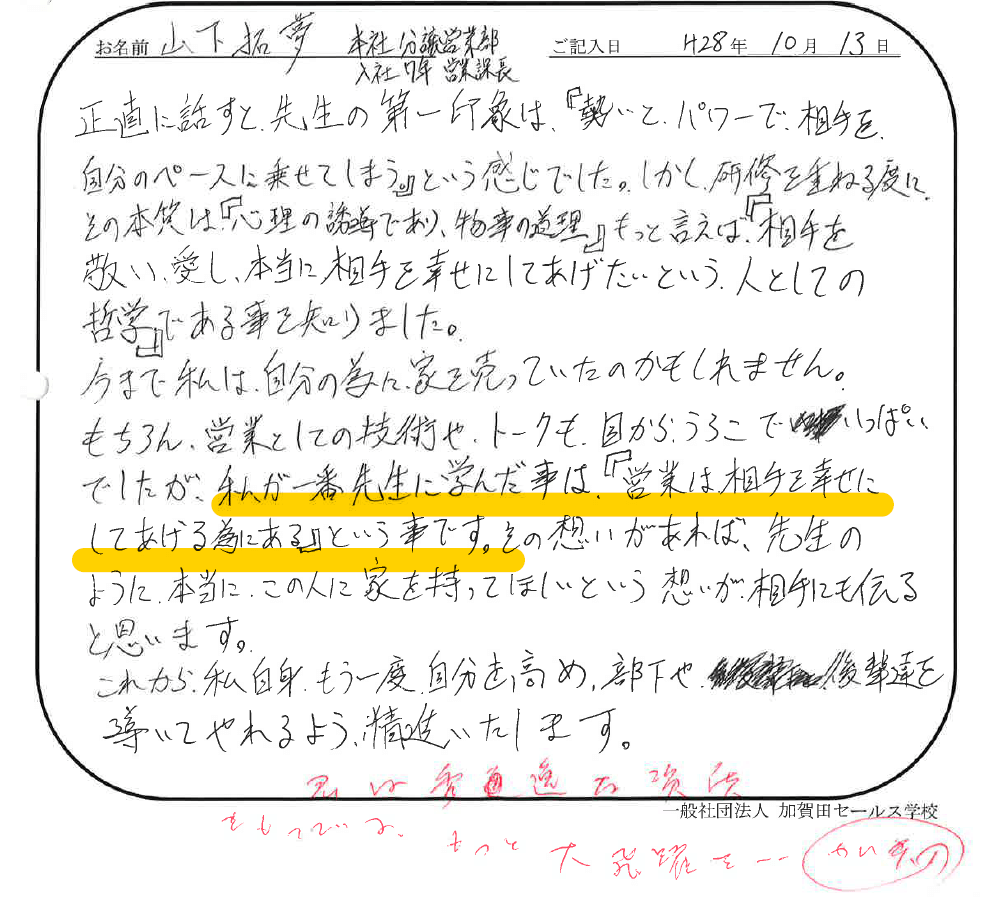 お名前 山下拓夢 本社 分譲営業部 ご記入日 H28年 10月 13日
入社7年 営業課長
正直に話すと、先生の第一印象は、『勢いと、パワーで、相手を、
自分のペースに乗せてしまう。』という感じでした。しかし、研修を重ねる度に、
その本質は、『心理の誘導であり、物事の道理』もっと言えば、『相手を
敬い、愛し、本当に相手を幸せにしてあげたいという、人としての
哲学』である事を知りました。
今まで私は、自分の為に、家を売っていたのかもしれません。
もちろん、営業としての技術や、トークも、目から、うろこで いっぱい
でしたが、私が一番先生に学んだ事は、『営業は、相手を幸せに
してあげる為にある』という事です。その想いがあれば、先生の
ように、本当に、この人に家を持ってほしいという想いが、相手にも伝る
と思います。
これから、私自身、もう一度、自分を高め、部下や、後輩達を
導いてやれるよう、精進いたします。
君は
一般社団法人 加賀田セールス学校
もっと 大飛躍を